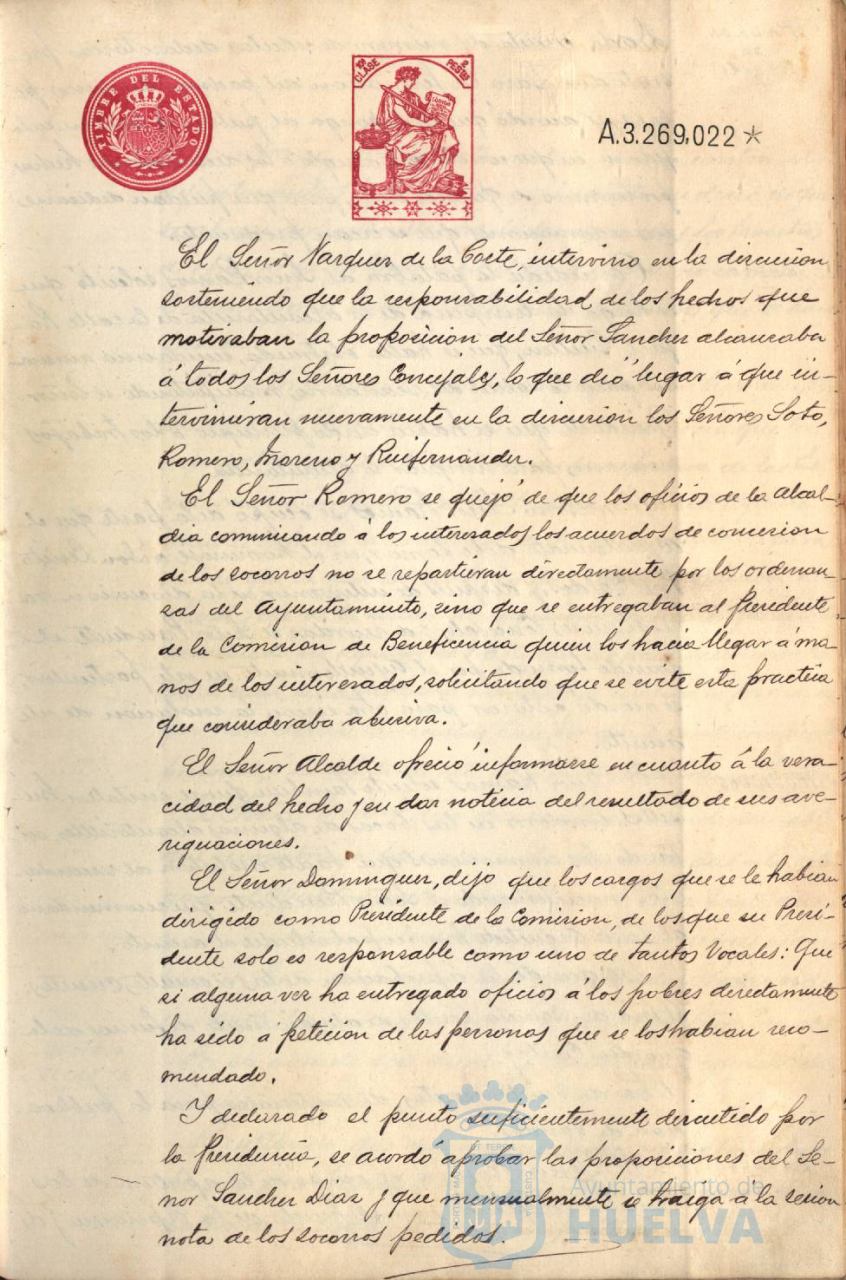 TIMBRE DEL ESTADO
10ª CLASE 2 PESTAS
A.3.269.022 *
El Señor Vazquez de la Corte, intervino en la discusion
sosteniendo que la responsabilidad de los hechos que
motivaban la proposicion del Señor Sanchez alcanzaba
á todos los Señores Concejales, lo que dió lugar á que in-
tervinieran nuevamente en la discusion los Señores Soto,
Romero, Moreno y Ruifernandez.
El Señor Romero se quejó de que los oficios de la Alcal-
dia comunicando á los interesados los acuerdos de concesion
de los socorros no se repartieran directamente por los ordenan-
zas del Ayuntamiento, sino que se entregaban al Presidente
de la Comision de Beneficencia quien los hacia llegar á ma-
nos de los interesados, solicitando que se evite esta practica
que consideraba abusiva.
El Señor Alcalde ofreció informarse en cuanto á la vera-
cidad del hecho y en dar noticia del resultado de sus ave-
riguaciones.
El Señor Dominguez, dijo que los cargos que se le habian
dirigido como Presidente de la Comision, de los que su Presi-
dente solo es responsable como uno de tantos Vocales: Que
si alguna vez ha entregado oficios á los pobres directamente
ha sido á peticion de las personas que se los habian reco-
mendado.
Y declarado el punto suficientemente discutido por
la Presidencia, se acordó aprobar las proposiciones del Se-
ñor Sanchez Diaz y que mensualmente se traiga á la sesion
nota de los socorros pedidos.
Ayuntamiento de
HUELVA